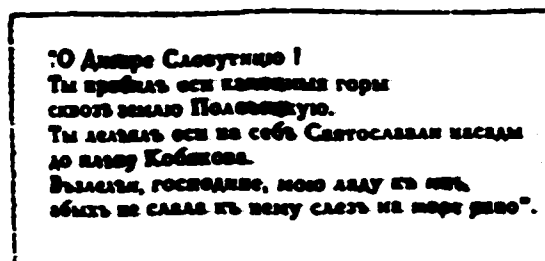 "О Днепре Словутицю!
Ты пробилъ еси каменныя горы
сквозѣ землю Половецкую.
Ты лелѣялъ еси на себѣ Святославли насады
до плъку Кобякова.
Възлелѣи, господине, мою ладу къ мнѣ,
абыхъ не слала къ нему слезъ на море рано".